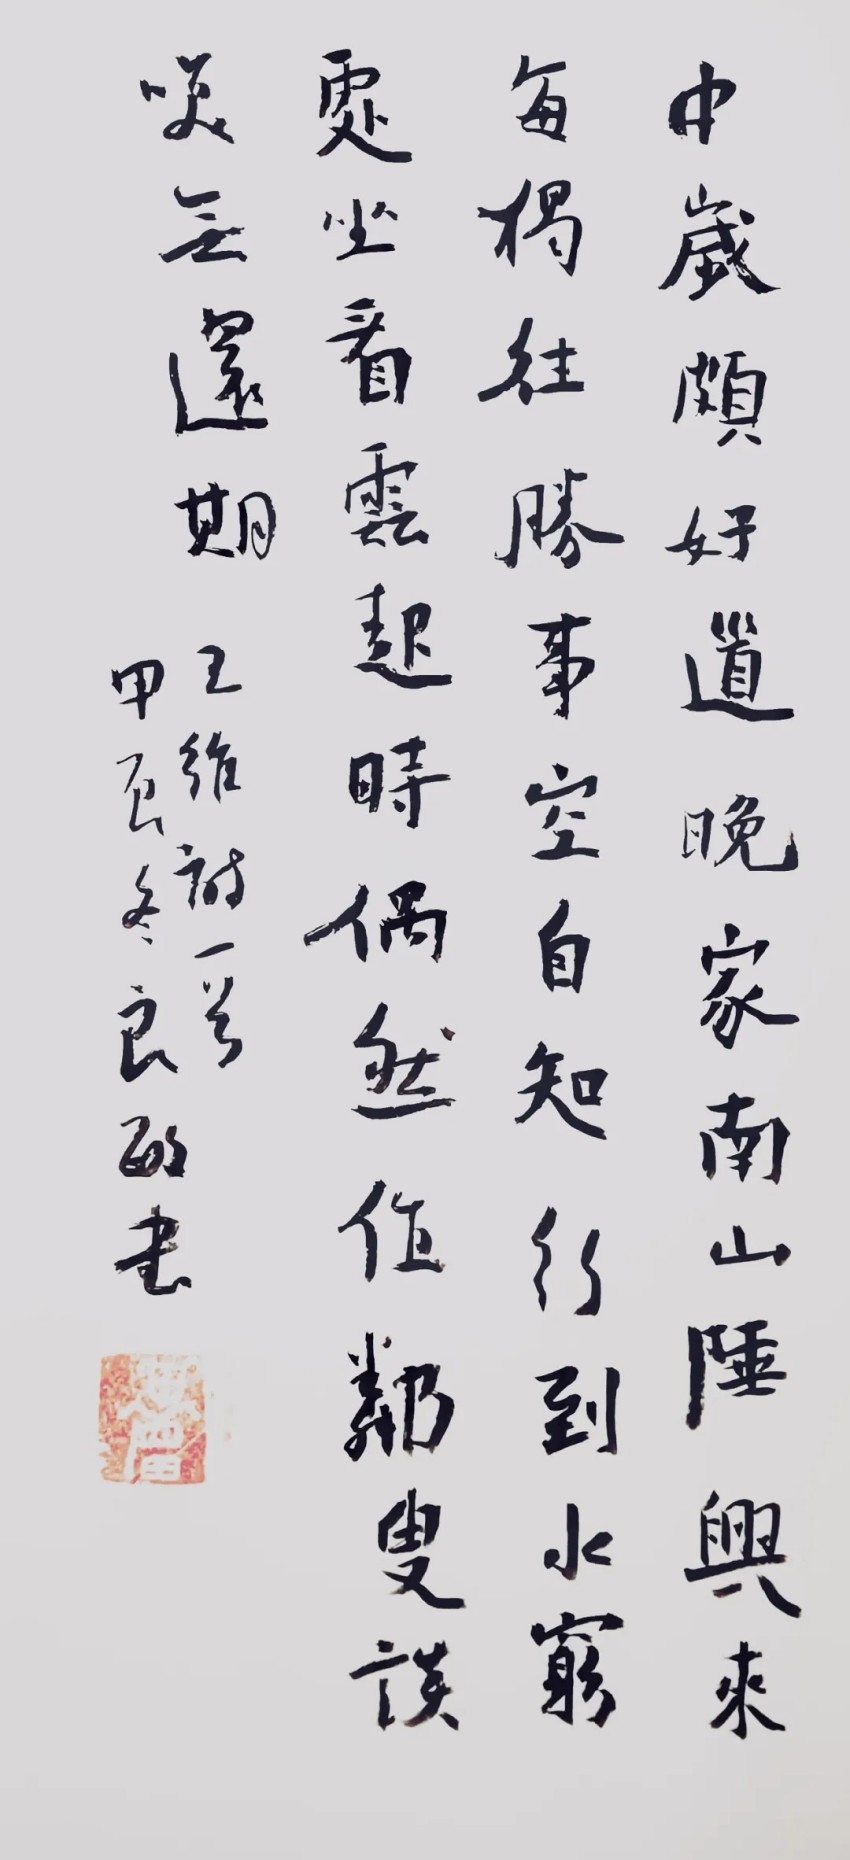 中歲頗好道晚家南山陲興來
每獨往勝事空自知行到水窮
處坐看雲起時偶然值鄰叟談
笑無還期
王維詩一首
甲辰冬良敏書